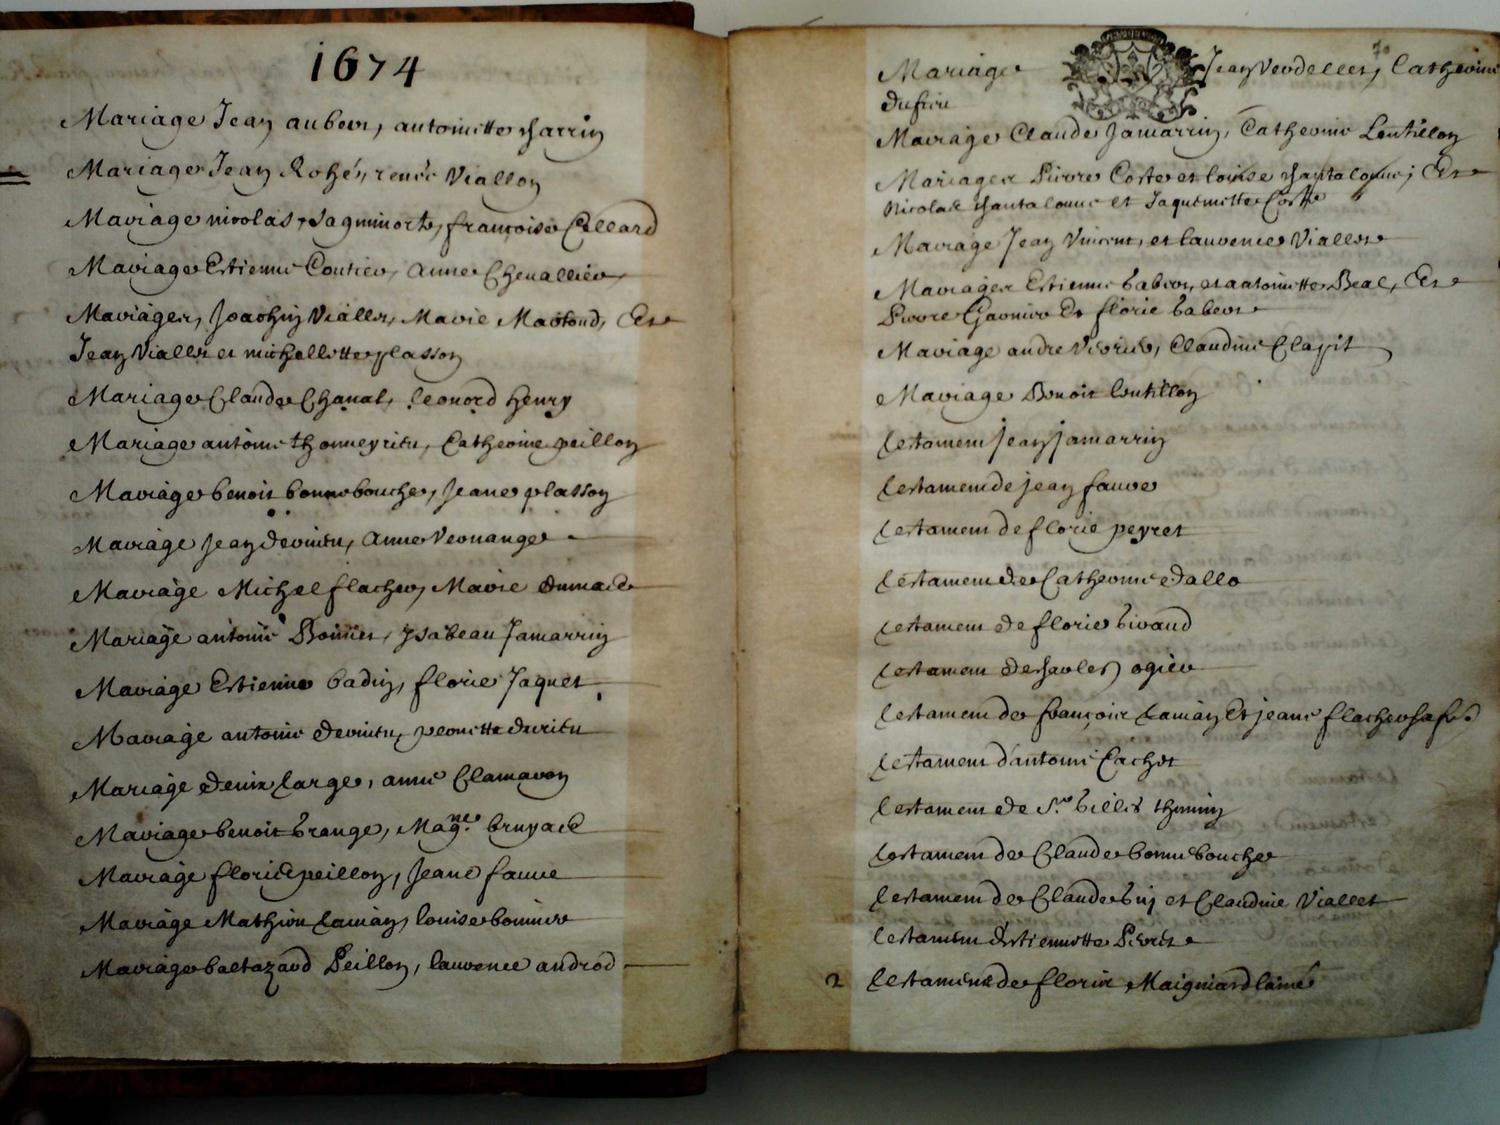 1674
Mariage Jean auber, antoinette charrin
Mariage Jean Rohé, renée Viallon
Mariage nicolas, Jaguimorte, françoise Collard
Mariage Estienne Coutier, anne Chevallier
Mariages, Joachin Viallet, Marie Mactoud, Et
Jean Viallet et michellette plasson
Mariage Claude Chanal, leonord henry
Mariage antoine thonneyrieu, Catherine peillon
Mariage benoit bonnebouche, Jeane plasson
Mariage Jean devirieu, Anne Vernange
Mariage Michel flacher, Marie dumas
Mariage antoine Bonnier, Ysabeau Jamarrin
Mariage Estienne badin, florie Jaquet
Mariage antoine devirieu, pernette durieu
Mariage denix large, anne Clamaron
Mariage benoit brange, Magne. bruyas
Mariage florie peillon, Jeane faure
Mariage Mathieu Lainay, louise bonnier
Mariage baltazard Peillon, laurence androd
70
Mariage Jean Verdellet, Catherine
dufieu
Mariage Claude Jamarrin, Catherine Lentillon
Mariages Pierre Coste et louise chantalouue; Et
Nicolas chantalouue et Jaquemette Coste
Mariage Jean Vincent, et laurence Viallet
Mariages Estienne baber, et antoinette Beal, Et
Pierre Garnier Et florie baber
Mariage andre Verrier, Claudine Clapit
Mariage Benoit lentillon
testament jean jamarrin
testament de jean faure
testament de florie peyret
testament de Catherine dallo
testament de florie birand
testament de charles ogier
testament de françois Lainay Et jeane flacher sa fe.
testament d'antoine Cachet
testament de Sr. billet thimin
testament de Claude bonnebouche
testament de Claude buy et Claudine Viallet
testament d'Estiennette Pierre
2 testament de florie Maigniard laine